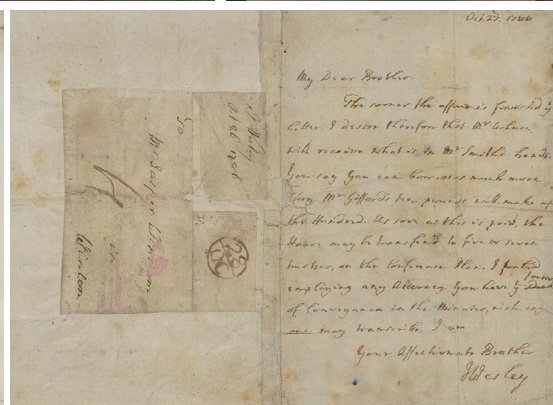 Oct. 23. 1786
My Dear Brother
The sooner the affair is
better. I desire therefore that Mr
will receive what is in Mr Smith's hands.
You say You can borrow as much more
Mr Gifford's ten pounds will make up
the Hundred. As soon as this is paid, the
House may be transferd to five or seven
trustees, on the Conference Plan. I
employing any Attorney. You have
of Conveyance in the Minutes, which any
one may transcribe. I am
Your Affectionate Brother
J Wesley
J Wesley
Oct 26 1786
To
Mr Jasper
in